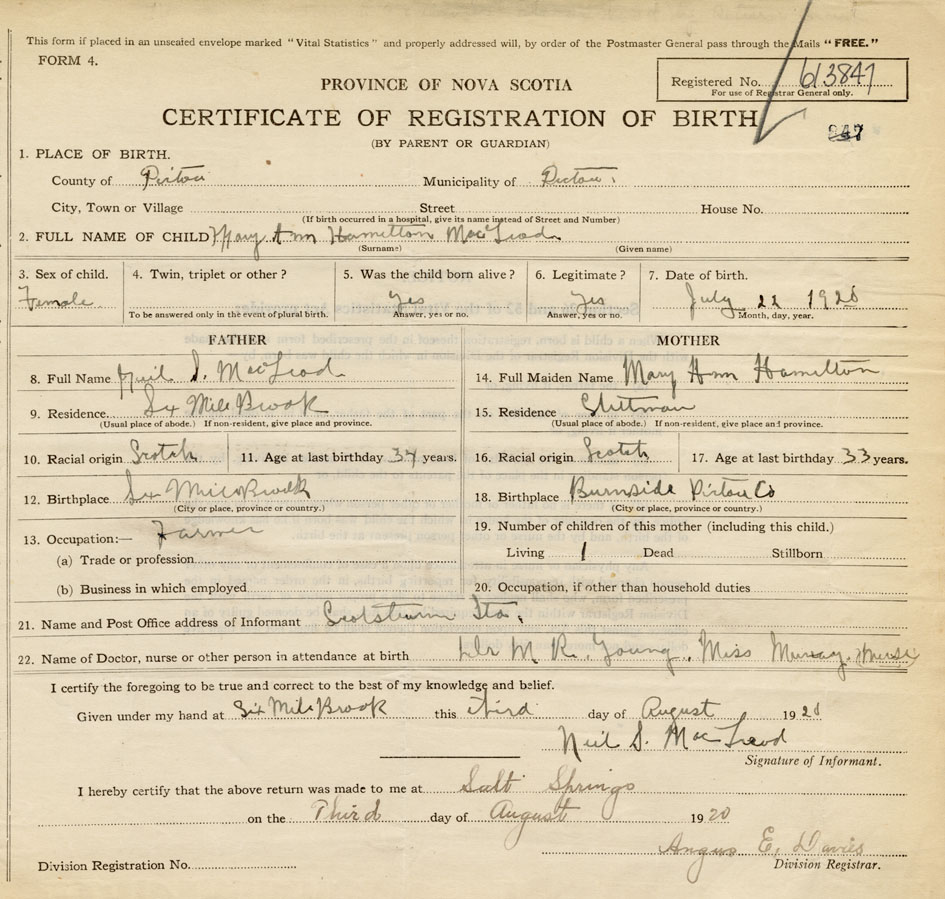 This form if placed in an unsealed envelope marked "Vital Statistics" and properly addressed will, by order of the Postmaster General pass through the Mails "FREE."
FORM 4.
PROVINCE OF NOVA SCOTIA
Registered No. 613847
For use of Registrar General only.
CERTIFICATE OF REGISTRATION OF BIRTH
847
(BY PARENT OR GUARDIAN)
1. PLACE OF BIRTH.
County of Pictou Municipality of Pictou
City, Town or Village Street House No.
(If birth occurred in a hospital, give its name instead of Street and Number)
2. FULL NAME OF CHILD Mary Ann Hamilton MacLeod
(Surname) (Given name)
3. Sex of child. 4. Twin, triplet or other? 5. Was the child born alive? 6. Legitimate? 7. Date of birth.
Female Yes Yes July 22 1928
To be answered only in the event of plural birth. Answer, yes or no. Answer, yes or no. Month, day, year.
FATHER
8. Full Name Neil S. MacLeod
9. Residence Six Mile Brook
(Usual place of abode.) If non-resident, give place and province.
10. Racial origin Scotch 11. Age at last birthday years.
12. Birthplace Six Mile Brook
(City or place, province or country.)
13. Occupation:— Farmer
(a) Trade or profession
(b) Business in which employed
MOTHER
14. Full Maiden Name Mary Ann Hamilton
15. Residence
(Usual place of abode.) If non-resident, give place and province.
16. Racial origin Scotch 17. Age at last birthday 33 years.
18. Birthplace Burnside Pictou Co
(City or place, province or country.)
19. Number of children of this mother (including this child.)
Living 1 Dead Stillborn
20. Occupation, if other than household duties
21. Name and Post Office address of Informant Scotsburn Sta.
22. Name of Doctor, nurse or other person in attendance at birth Dr M. R. Young, Miss Murray, Nurse
I certify the foregoing to be true and correct to the best of my knowledge and belief.
Given under my hand at Six Mile Brook this third day of August 1928
Neil S. MacLeod
Signature of Informant.
I hereby certify that the above return was made to me at Salt Springs
on the Third day of August 1920
Angus E. Davies
Division Registration No. Division Registrar.